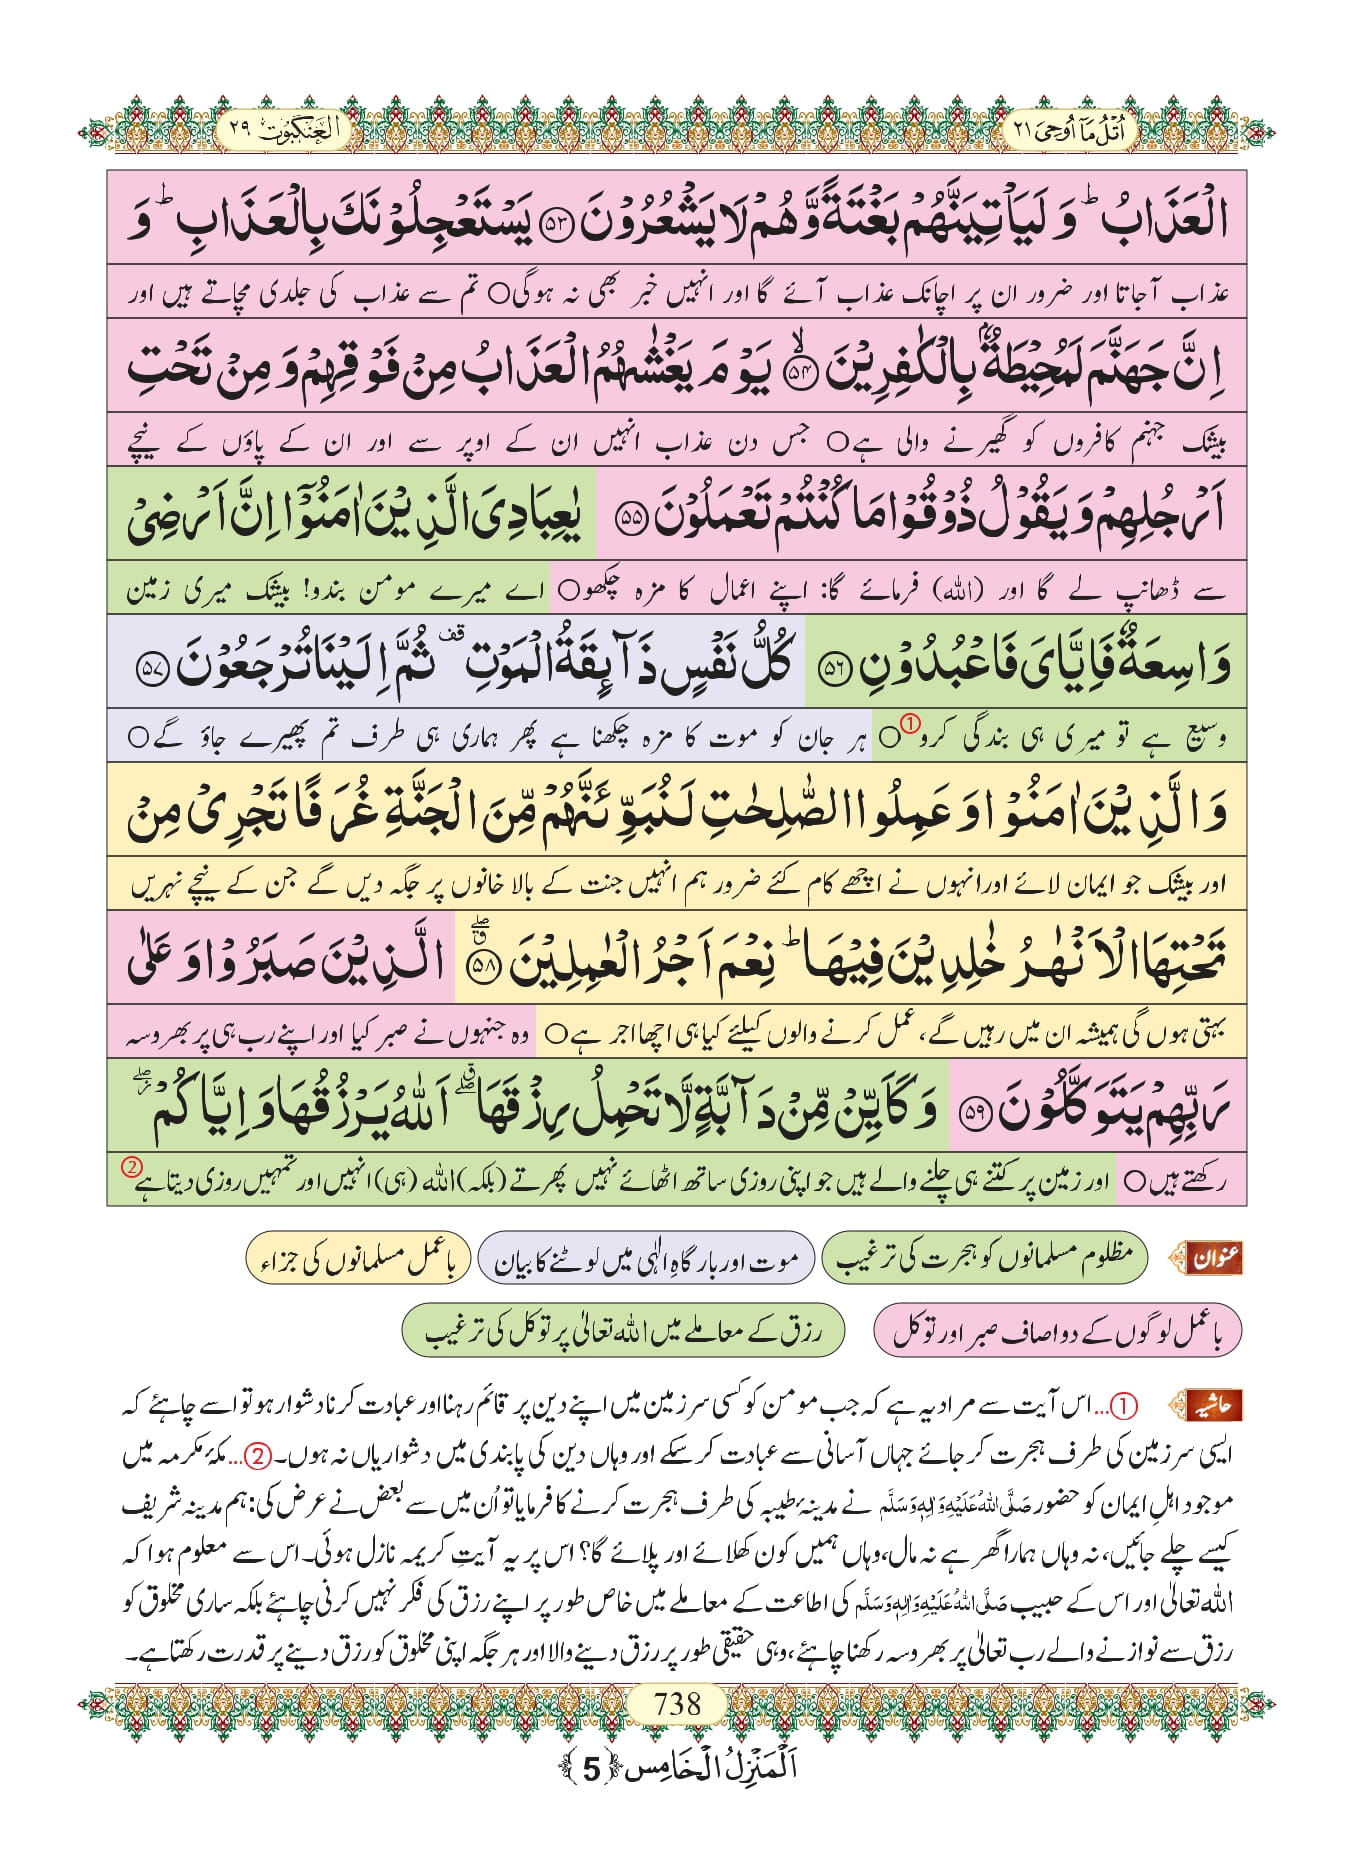 اُتْلُ مَاۤ اُوْحِیَ ۲۱
الْعَنْکَبُوْت ۲۹
الْعَذَابُؕ وَ لَیَاْتِیَنَّهُمْ بَغْتَةً وَّ هُمْ لَا یَشْعُرُوْنَ ﴿۵۳﴾ یَسْتَعْجِلُوْنَكَ بِالْعَذَابِؕ وَ
عذاب آجاتا اور ضرور ان پر اچانک عذاب آئے گا اور انہیں خبر بھی نہ ہوگی○ تم سے عذاب کی جلدی مچاتے ہیں اور
اِنَّ جَهَنَّمَ لَمُحِیْطَةٌۢ بِالْكٰفِرِیْنَۙ ﴿۵۴﴾ یَوْمَ یَغْشٰىهُمُ الْعَذَابُ مِنْ فَوْقِهِمْ وَ مِنْ تَحْتِ
بیشک جہنم کافروں کو گھیرنے والی ہے○ جس دن عذاب انہیں ان کے اوپر سے اور ان کے پاؤں کے نیچے
اَرْجُلِهِمْ وَ یَقُوْلُ ذُوْقُوْا مَا كُنْتُمْ تَعْمَلُوْنَ ﴿۵۵﴾ یٰعِبَادِیَ الَّذِیْنَ اٰمَنُوْۤا اِنَّ اَرْضِیْ
سے ڈھانپ لے گا اور (اللہ) فرمائے گا: اپنے اعمال کا مزہ چکھو○ اے میرے مومن بندو! بیشک میری زمین
وَاسِعَةٌ فَاِیَّایَ فَاعْبُدُوْنِ ﴿۵۶﴾ كُلُّ نَفْسٍ ذَآىٕقَةُ الْمَوْتِ۫ ثُمَّ اِلَیْنَا تُرْجَعُوْنَ ﴿۵۷﴾
وسیع ہے تو میری ہی بندگی کرو①○ ہر جان کو موت کا مزہ چکھنا ہے پھر ہماری ہی طرف تم پھیرے جاؤ گے○
وَ الَّذِیْنَ اٰمَنُوْا وَ عَمِلُوا الصّٰلِحٰتِ لَنُبَوِّئَنَّهُمْ مِّنَ الْجَنَّةِ غُرَفًا تَجْرِیْ مِنْ
اور بیشک جو ایمان لائے اور انہوں نے اچھے کام کئے ضرور ہم انہیں جنت کے بالا خانوں پر جگہ دیں گے جن کے نیچے نہریں
تَحْتِهَا الْاَنْهٰرُ خٰلِدِیْنَ فِیْهَاؕ نِعْمَ اَجْرُ الْعٰمِلِیْنَۗۖ ﴿۵۸﴾ الَّذِیْنَ صَبَرُوْا وَ عَلٰى
بہتی ہوں گی ہمیشہ ان میں رہیں گے، عمل کرنے والوں کیلئے کیا ہی اچھا اجر ہے○ وہ جنہوں نے صبر کیا اور اپنے رب ہی پر بھروسہ
رَبِّهِمْ یَتَوَكَّلُوْنَ ﴿۵۹﴾ وَ كَاَیِّنْ مِّنْ دَآبَّةٍ لَّا تَحْمِلُ رِزْقَهَاۗۖ اَللّٰهُ یَرْزُقُهَا وَ اِیَّاكُمْ٘ۖ
رکھتے ہیں○ اور زمین پر کتنے ہی چلنے والے ہیں جو اپنی روزی ساتھ اٹھائے نہیں پھرتے (بلکہ) اللہ (ہی) انہیں اور تمہیں روزی دیتا ہے②
عنوان مظلوم مسلمانوں کو ہجرت کی ترغیب موت اور بارگاہِ الٰہی میں لوٹنے کا بیان باعمل مسلمانوں کی جزاء
باعمل لوگوں کے دو اصاف صبر اور توکل رزق کے معاملے میں اللہ تعالیٰ پر توکل کی ترغیب
حاشیہ ①...اس آیت سے مراد یہ ہے کہ جب مومن کو کسی سرزمین میں اپنے دین پر قائم رہنا اور عبادت کرنا دشوار ہو تو اسے چاہئے کہ
ایسی سرزمین کی طرف ہجرت کر جائے جہاں آسانی سے عبادت کر سکے اور وہاں دین کی پابندی میں دشواریاں نہ ہوں۔②...مکۂ مکرمہ میں
موجود اہلِ ایمان کو حضور صَلَّی اللہُ عَلَیْہِ وَاٰلِہٖ وَسَلَّم نے مدینۂ طیبہ کی طرف ہجرت کرنے کا فرمایا تو اُن میں سے بعض نے عرض کی: ہم مدینہ شریف
کیسے چلے جائیں، نہ وہاں ہمارا گھر ہے نہ مال، وہاں ہمیں کون کھلائے اور پلائے گا؟ اس پر یہ آیتِ کریمہ نازل ہوئی۔ اس سے معلوم ہوا کہ
اللہ تعالیٰ اور اس کے حبیب صَلَّی اللہُ عَلَیْہِ وَاٰلِہٖ وَسَلَّم کی اطاعت کے معاملے میں خاص طور پر اپنے رزق کی فکر نہیں کرنی چاہئے بلکہ ساری مخلوق کو
رزق سے نوازنے والے رب تعالیٰ پر بھروسہ رکھنا چاہئے، وہی حقیقی طور پر رزق دینے والا اور ہر جگہ اپنی مخلوق کو رزق دینے پر قدرت رکھتا ہے۔
738
اَلْمَنْزِلُ الْخَامِس ﴿5﴾